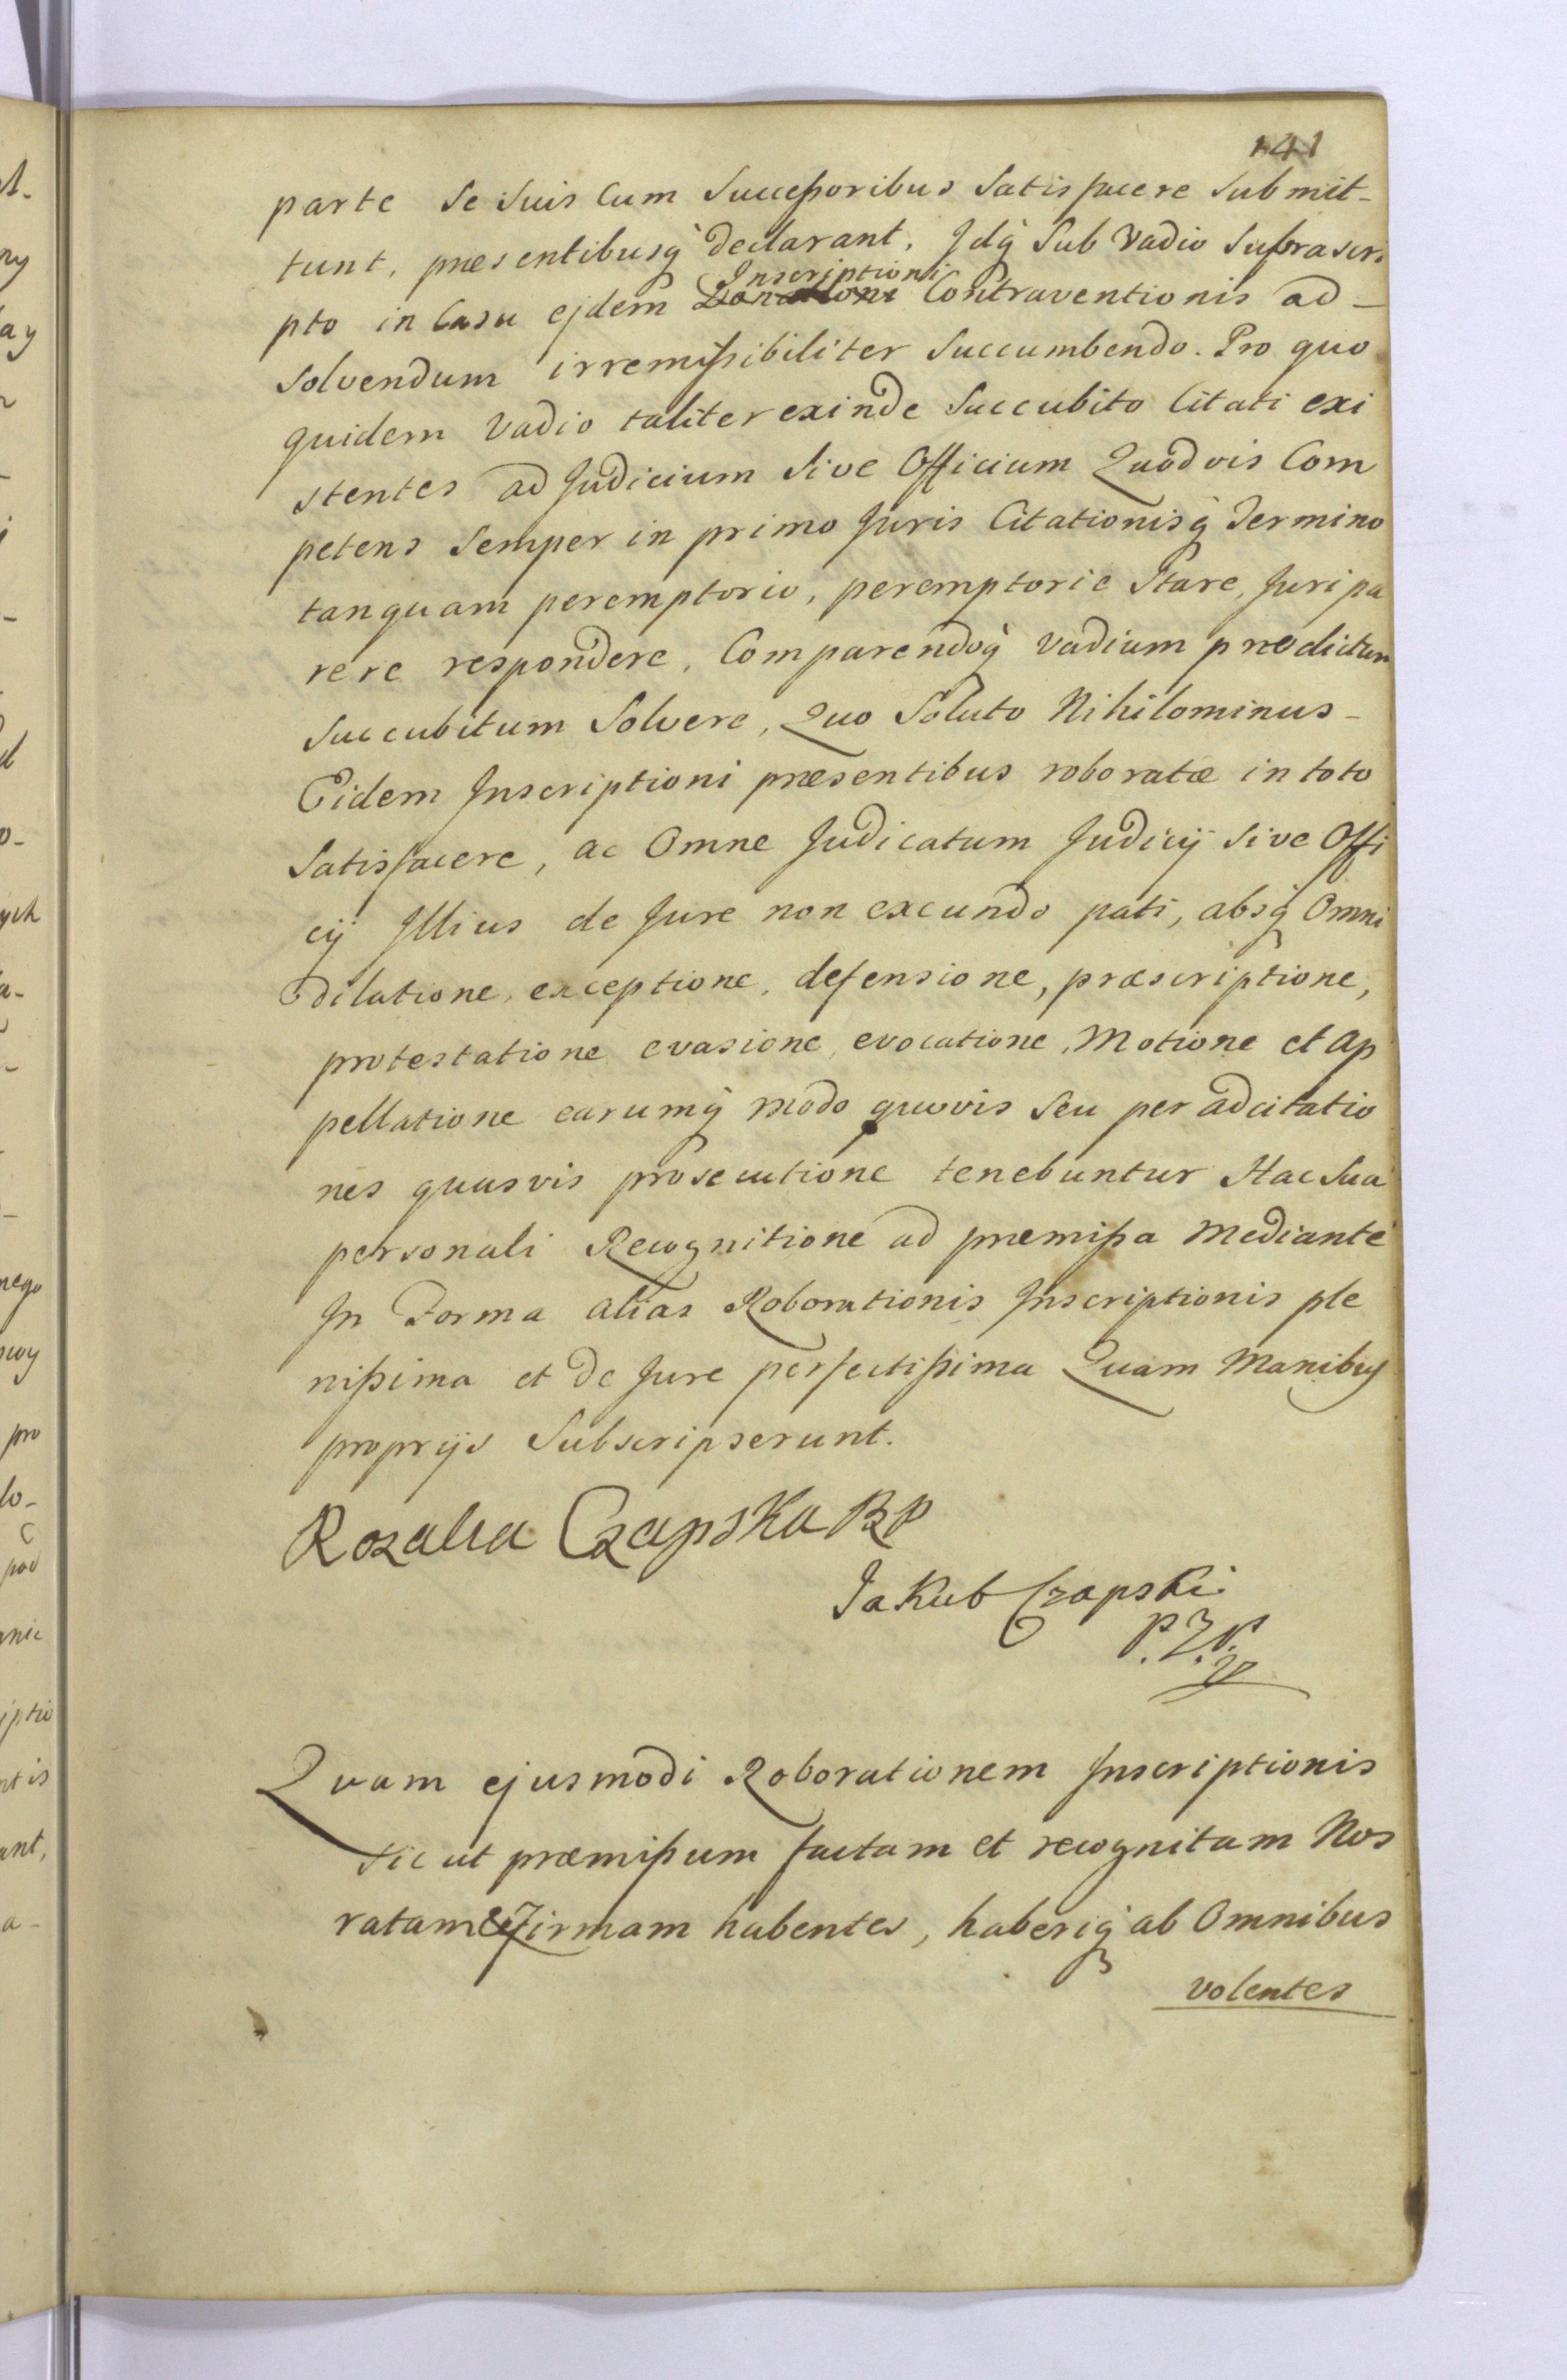 141
parte se suis cum Succeßoribus Satisfacere Submit-
tunt, præsentibusq̀ declarant. Idq̀ Sub Vadio Suprascri
Inscriptioni
pto in Casu ejdem Donationi Contraventionis ad-
solvendum irremißibiliter Succumbendo. Pro quo
quidem Vadio taliter exinde Succubito Citati exi
stentes ad Judicium Sive Officium Quodvis Com
petens Semper in primo Juris Citationisq̀ Termino
tanquam peremptorio, peremptorie Stare, Juri pa
rere respondere, Comparendoq̀ Vadium prædictum
succubitum Solvere, Quo Soluto Nihilominus-
Eidem Inscriptioni præsentibus roboratæ in toto
Satisfacere, ac Omne Judicatum Judicij sive Offi
cij Illius de Jure non exeundo pati, absq̀ Omni
dilatione, exceptione, defensione, præscriptione,
protestatione evasione, evocatione, Motione et ap
pellatione earumq̀ modo quovis seu per adcitatio
nes quasvis prosecutione tenebuntur Hac Sua
personali Recognitione ad præmißa Mediante
In Forma alias Roborationis Inscriptionis ple
nißima et de Jure perfectißima Quam Manibus
proprijs Subscripserunt.
Rozalia Czapska
Jakub Czapski
P. Z. P.
Quam ejusmodi Roborationem Inscriptionis
sic ut præmißum factam et recognitam Nos
ratam & Firmam habentes, haberiq̀ ab Omnibus
volentes